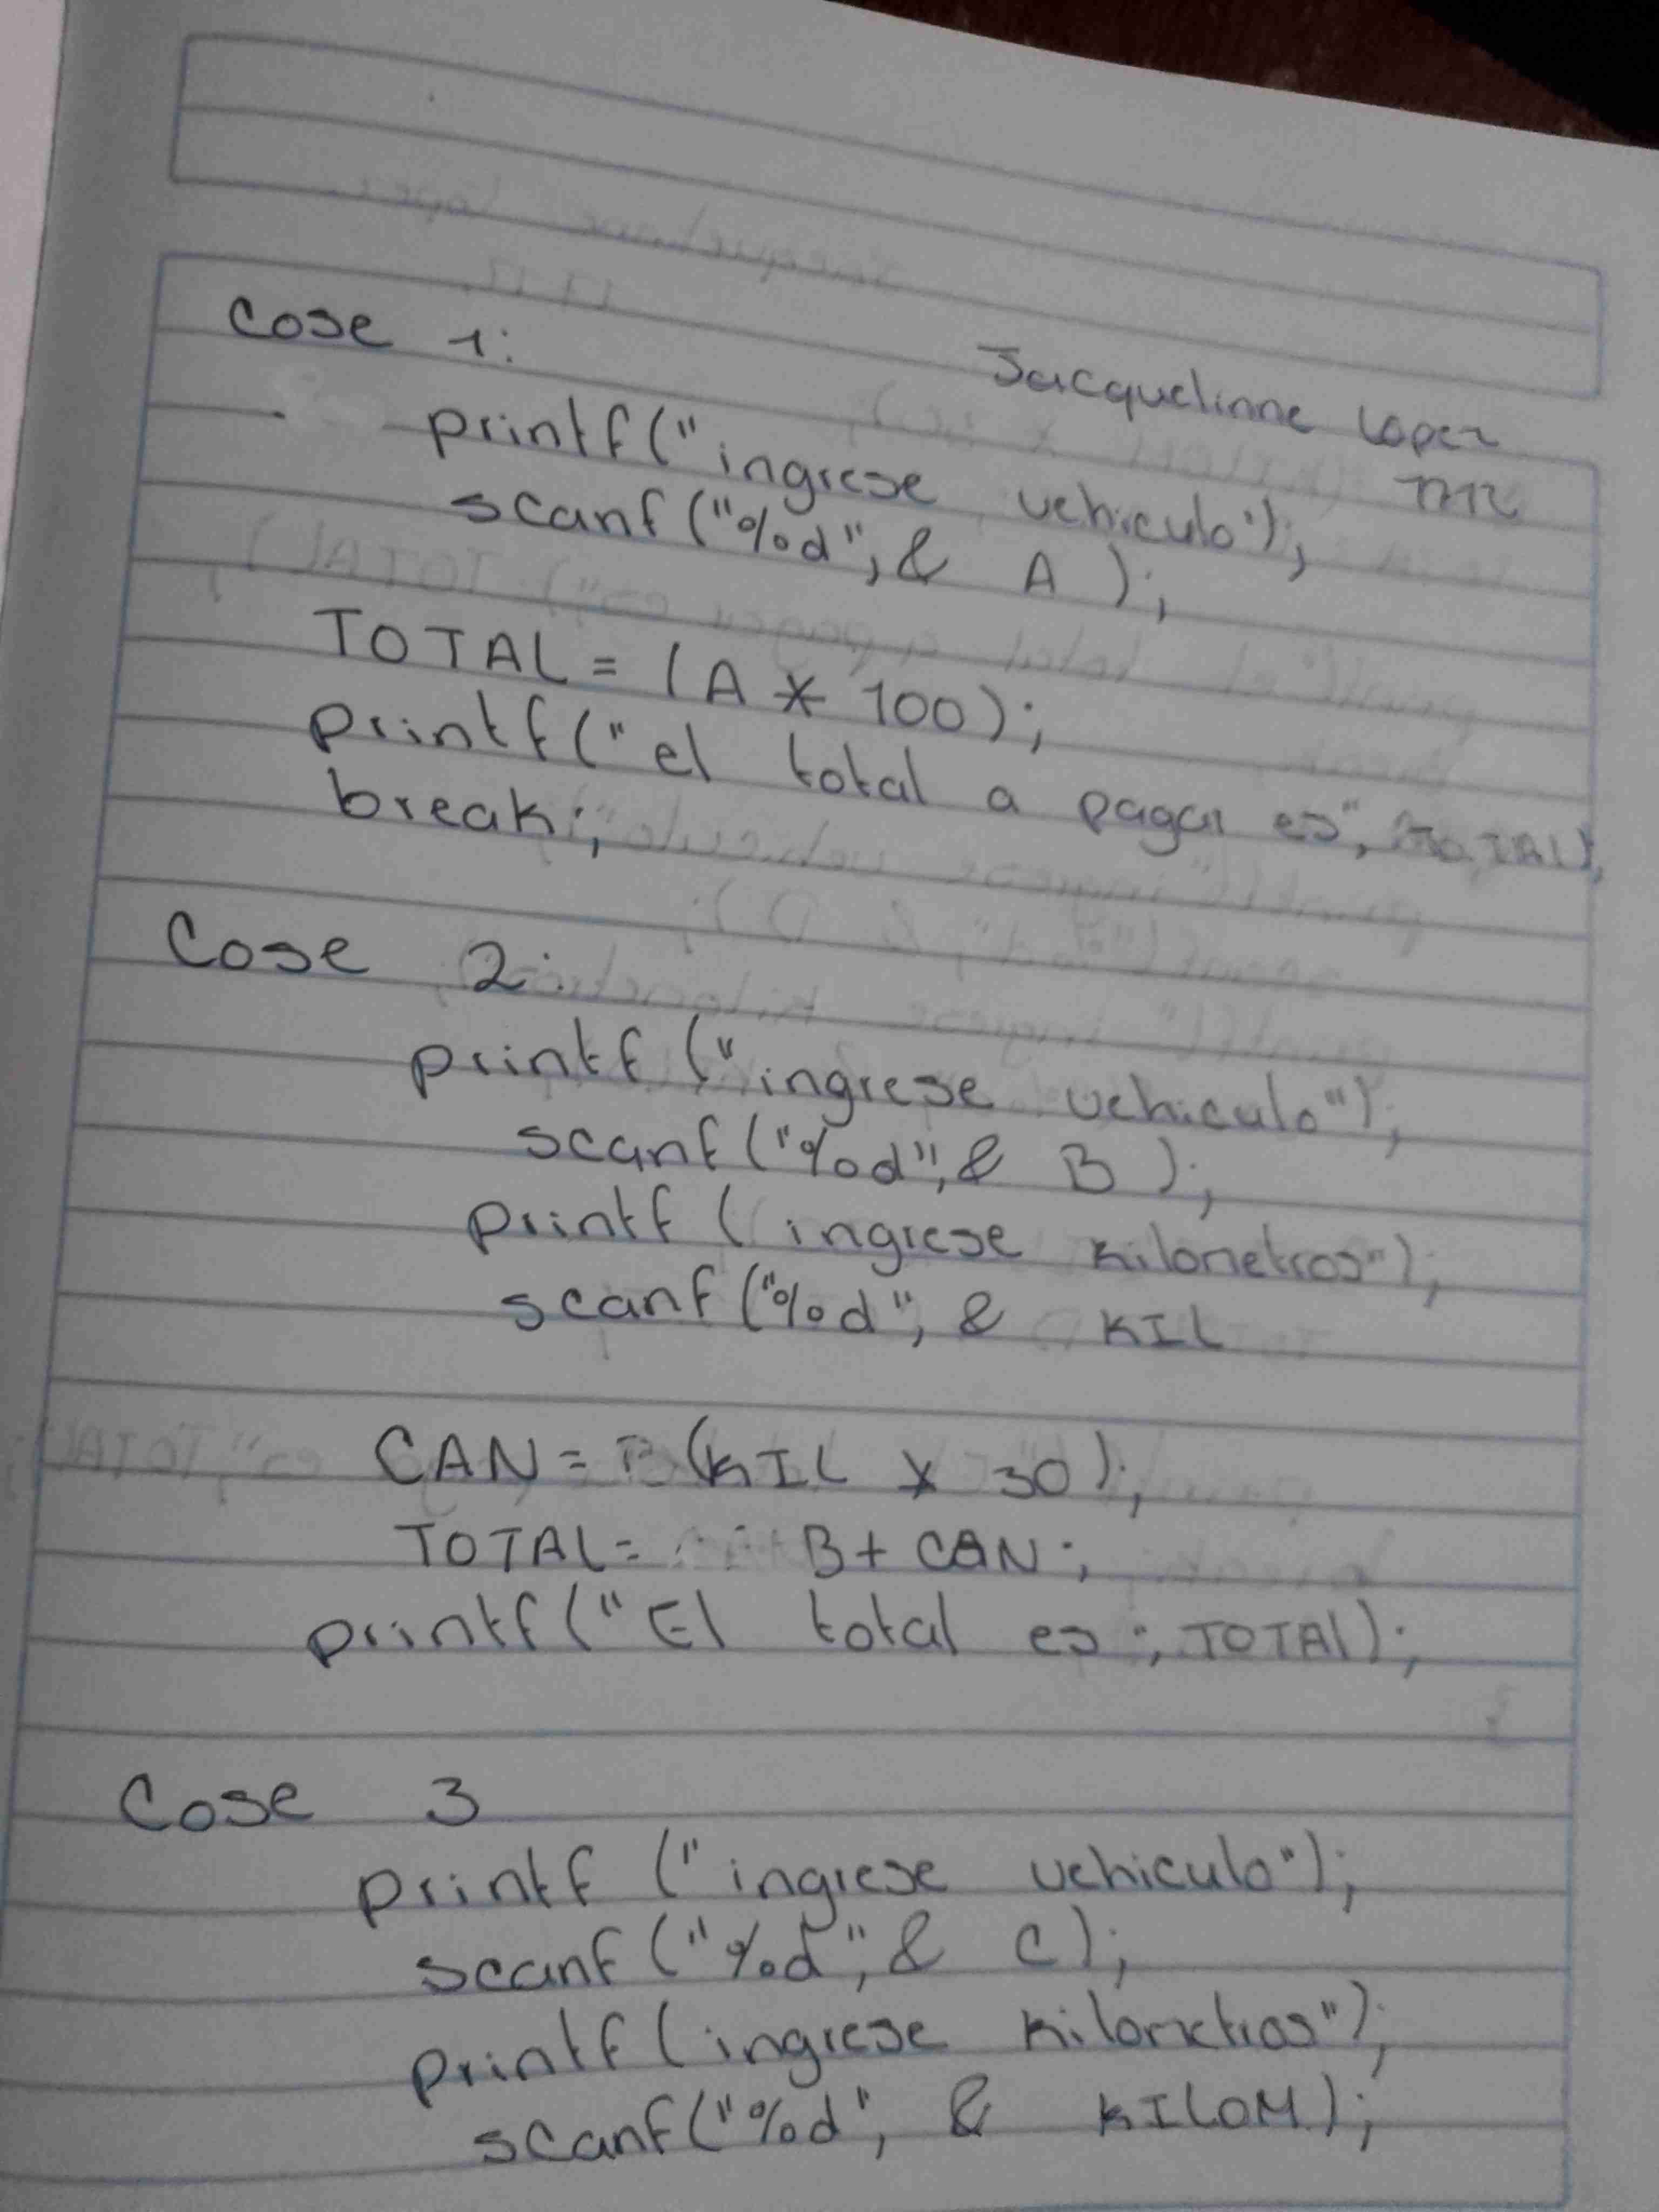 Case 1:
Jacquelinne Lopez
printf("ingrese vehiculo");
scanf("%d",& A );
TOTAL = (A * 100);
printf("el total a pagar es", TOTAL);
break;
Case 2:
printf ("ingrese vehiculo");
scanf("%d",& B );
printf ( ingrese kilometros");
scanf("%d", & KIL
CAN= (KIL * 30);
TOTAL= B+ CAN;
printf("El total es ; TOTAL);
Case 3
printf ("ingrese vehiculo");
scanf ("%d",& C);
printf(ingrese kilometros");
scanf("%d", & KILOM);